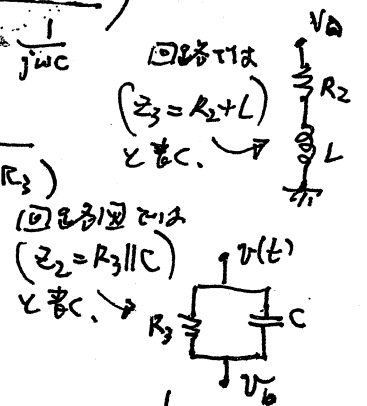 1
jωC
回路では
(Z₃ = R₂+L)
と書く。
R₃)
回路図では
(Z₂ = R₃||C)
と書く。
R₂
L
v(t)
R₃
C
V_b